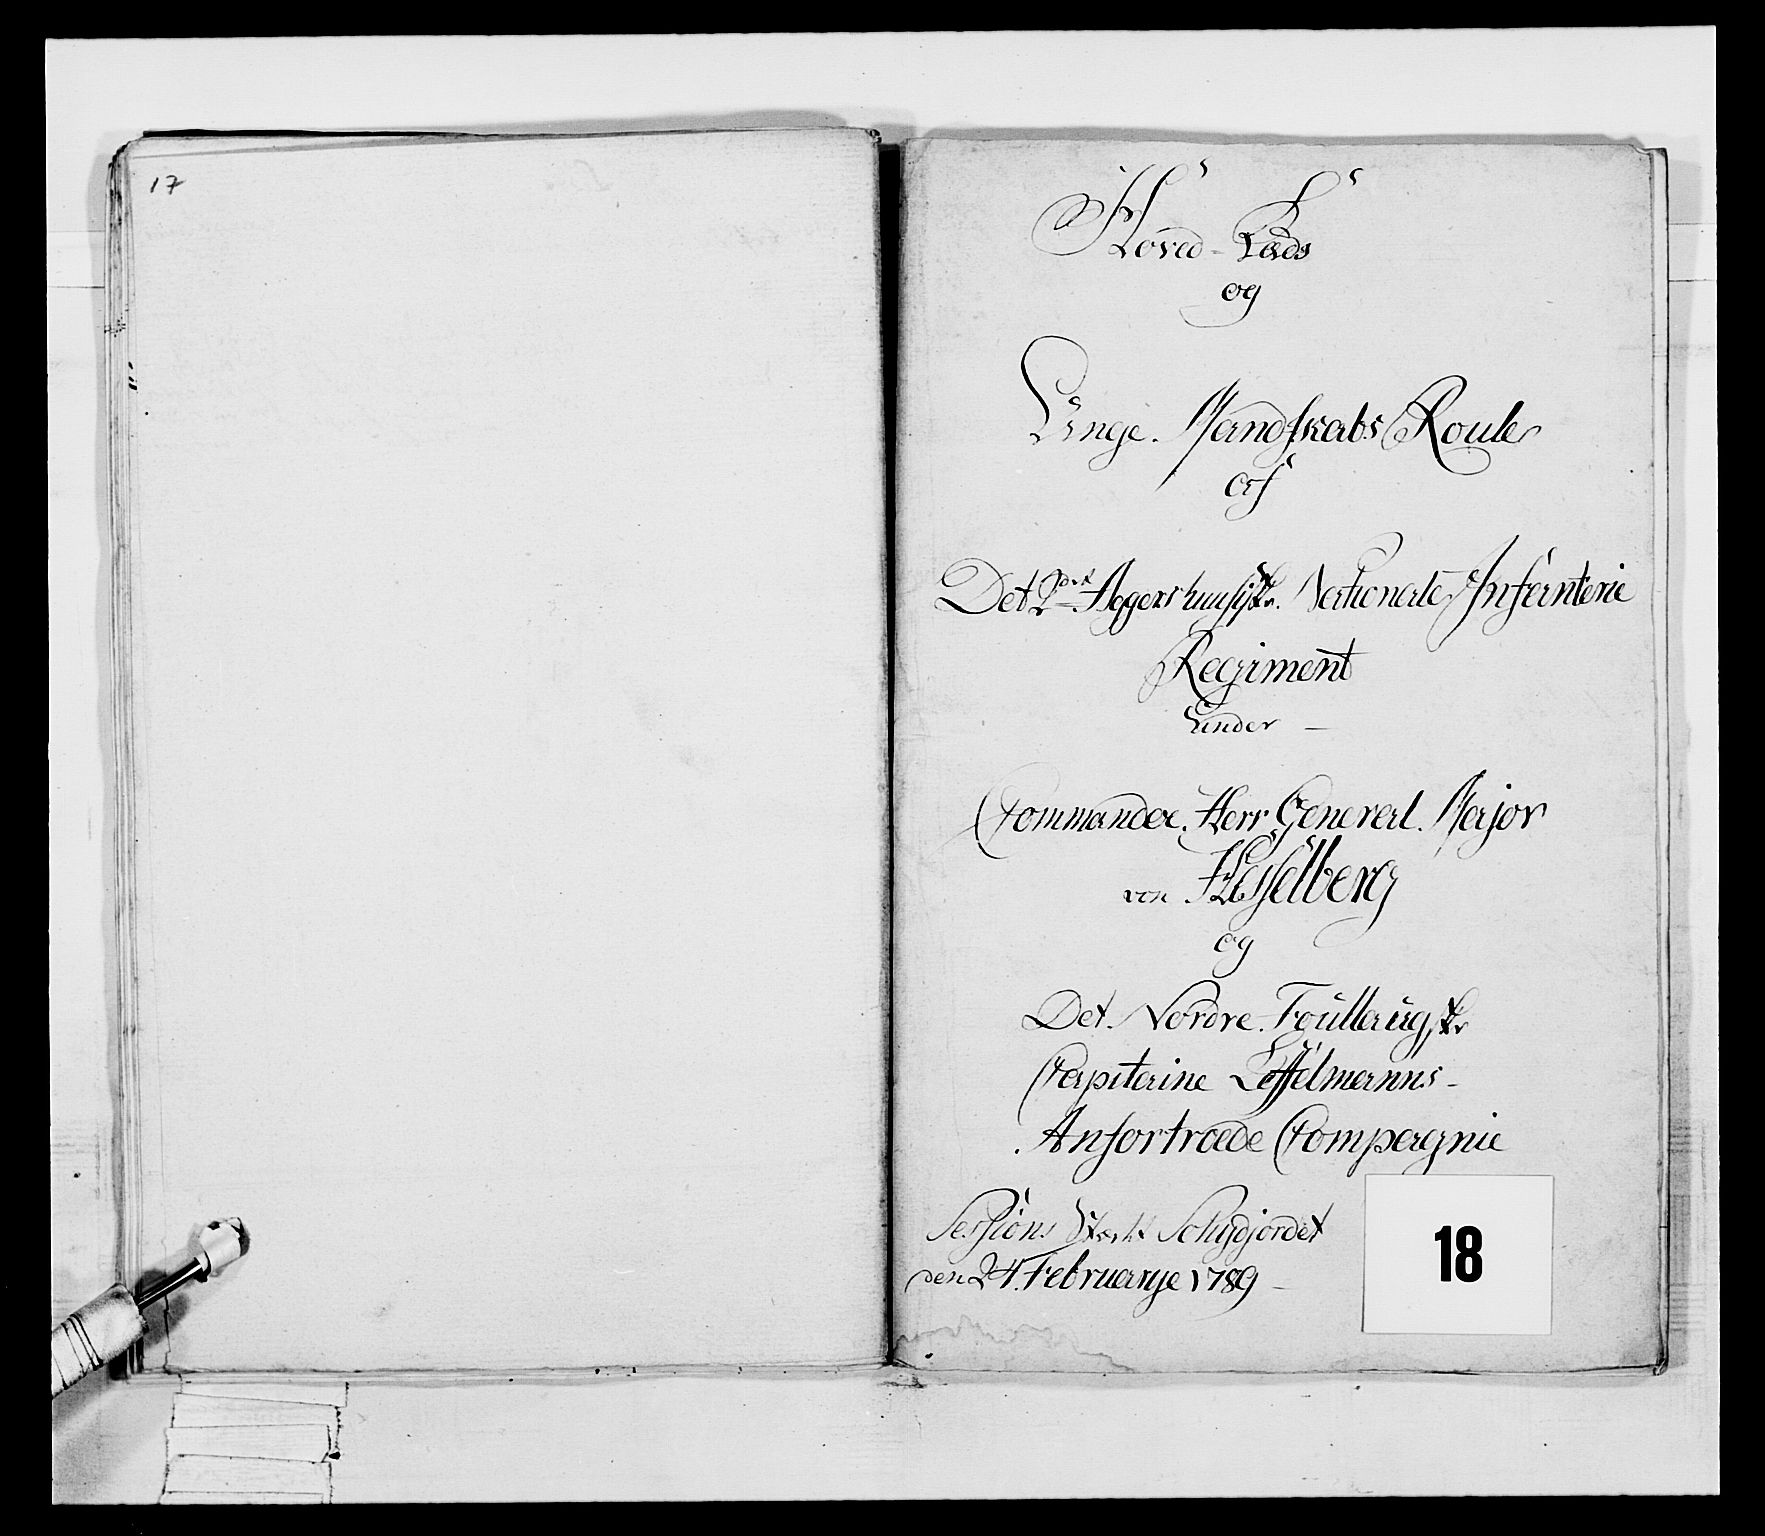 17
Hoved-Rads
og
Unge. Mandskabs Roule
af
Det 2det Aggershuusiske. Nationale Infanterie
Regiment
Under –
Commandee. Herr General. Major
von Hesselberg
og
Det. Nordre. Foullaugske
Capitaine Leffelmanns –
Anfortraede Compagnie
Sessions Schydjordet
den 24. Februarye 1789 –
18